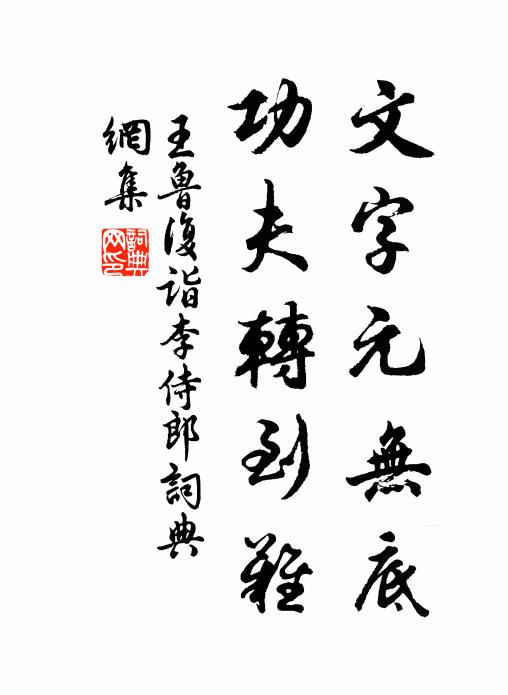 文字元無底
功夫轉到難
王魯復詣李侍郎詞典
網集
詞典網印